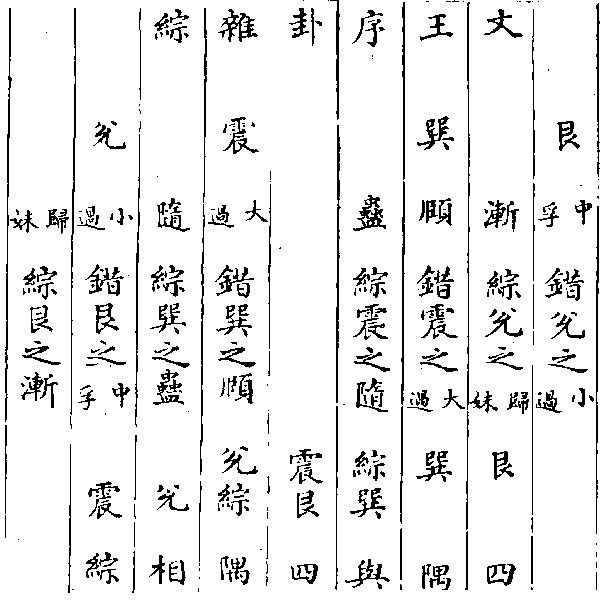 艮 中孚 錯兌之小過
文 漸 綜兌之歸妹 艮 四
王 巽 頤 錯震之大過 巽 隅
序 蠱 綜震之隨 綜巽與
卦 震艮 四
雜 震 大過 錯巽之頤 兌綜 隅
綜 隨 綜巽之蠱 兌 相
兌 小過 錯艮之中孚 震 綜
歸妹 綜艮之漸